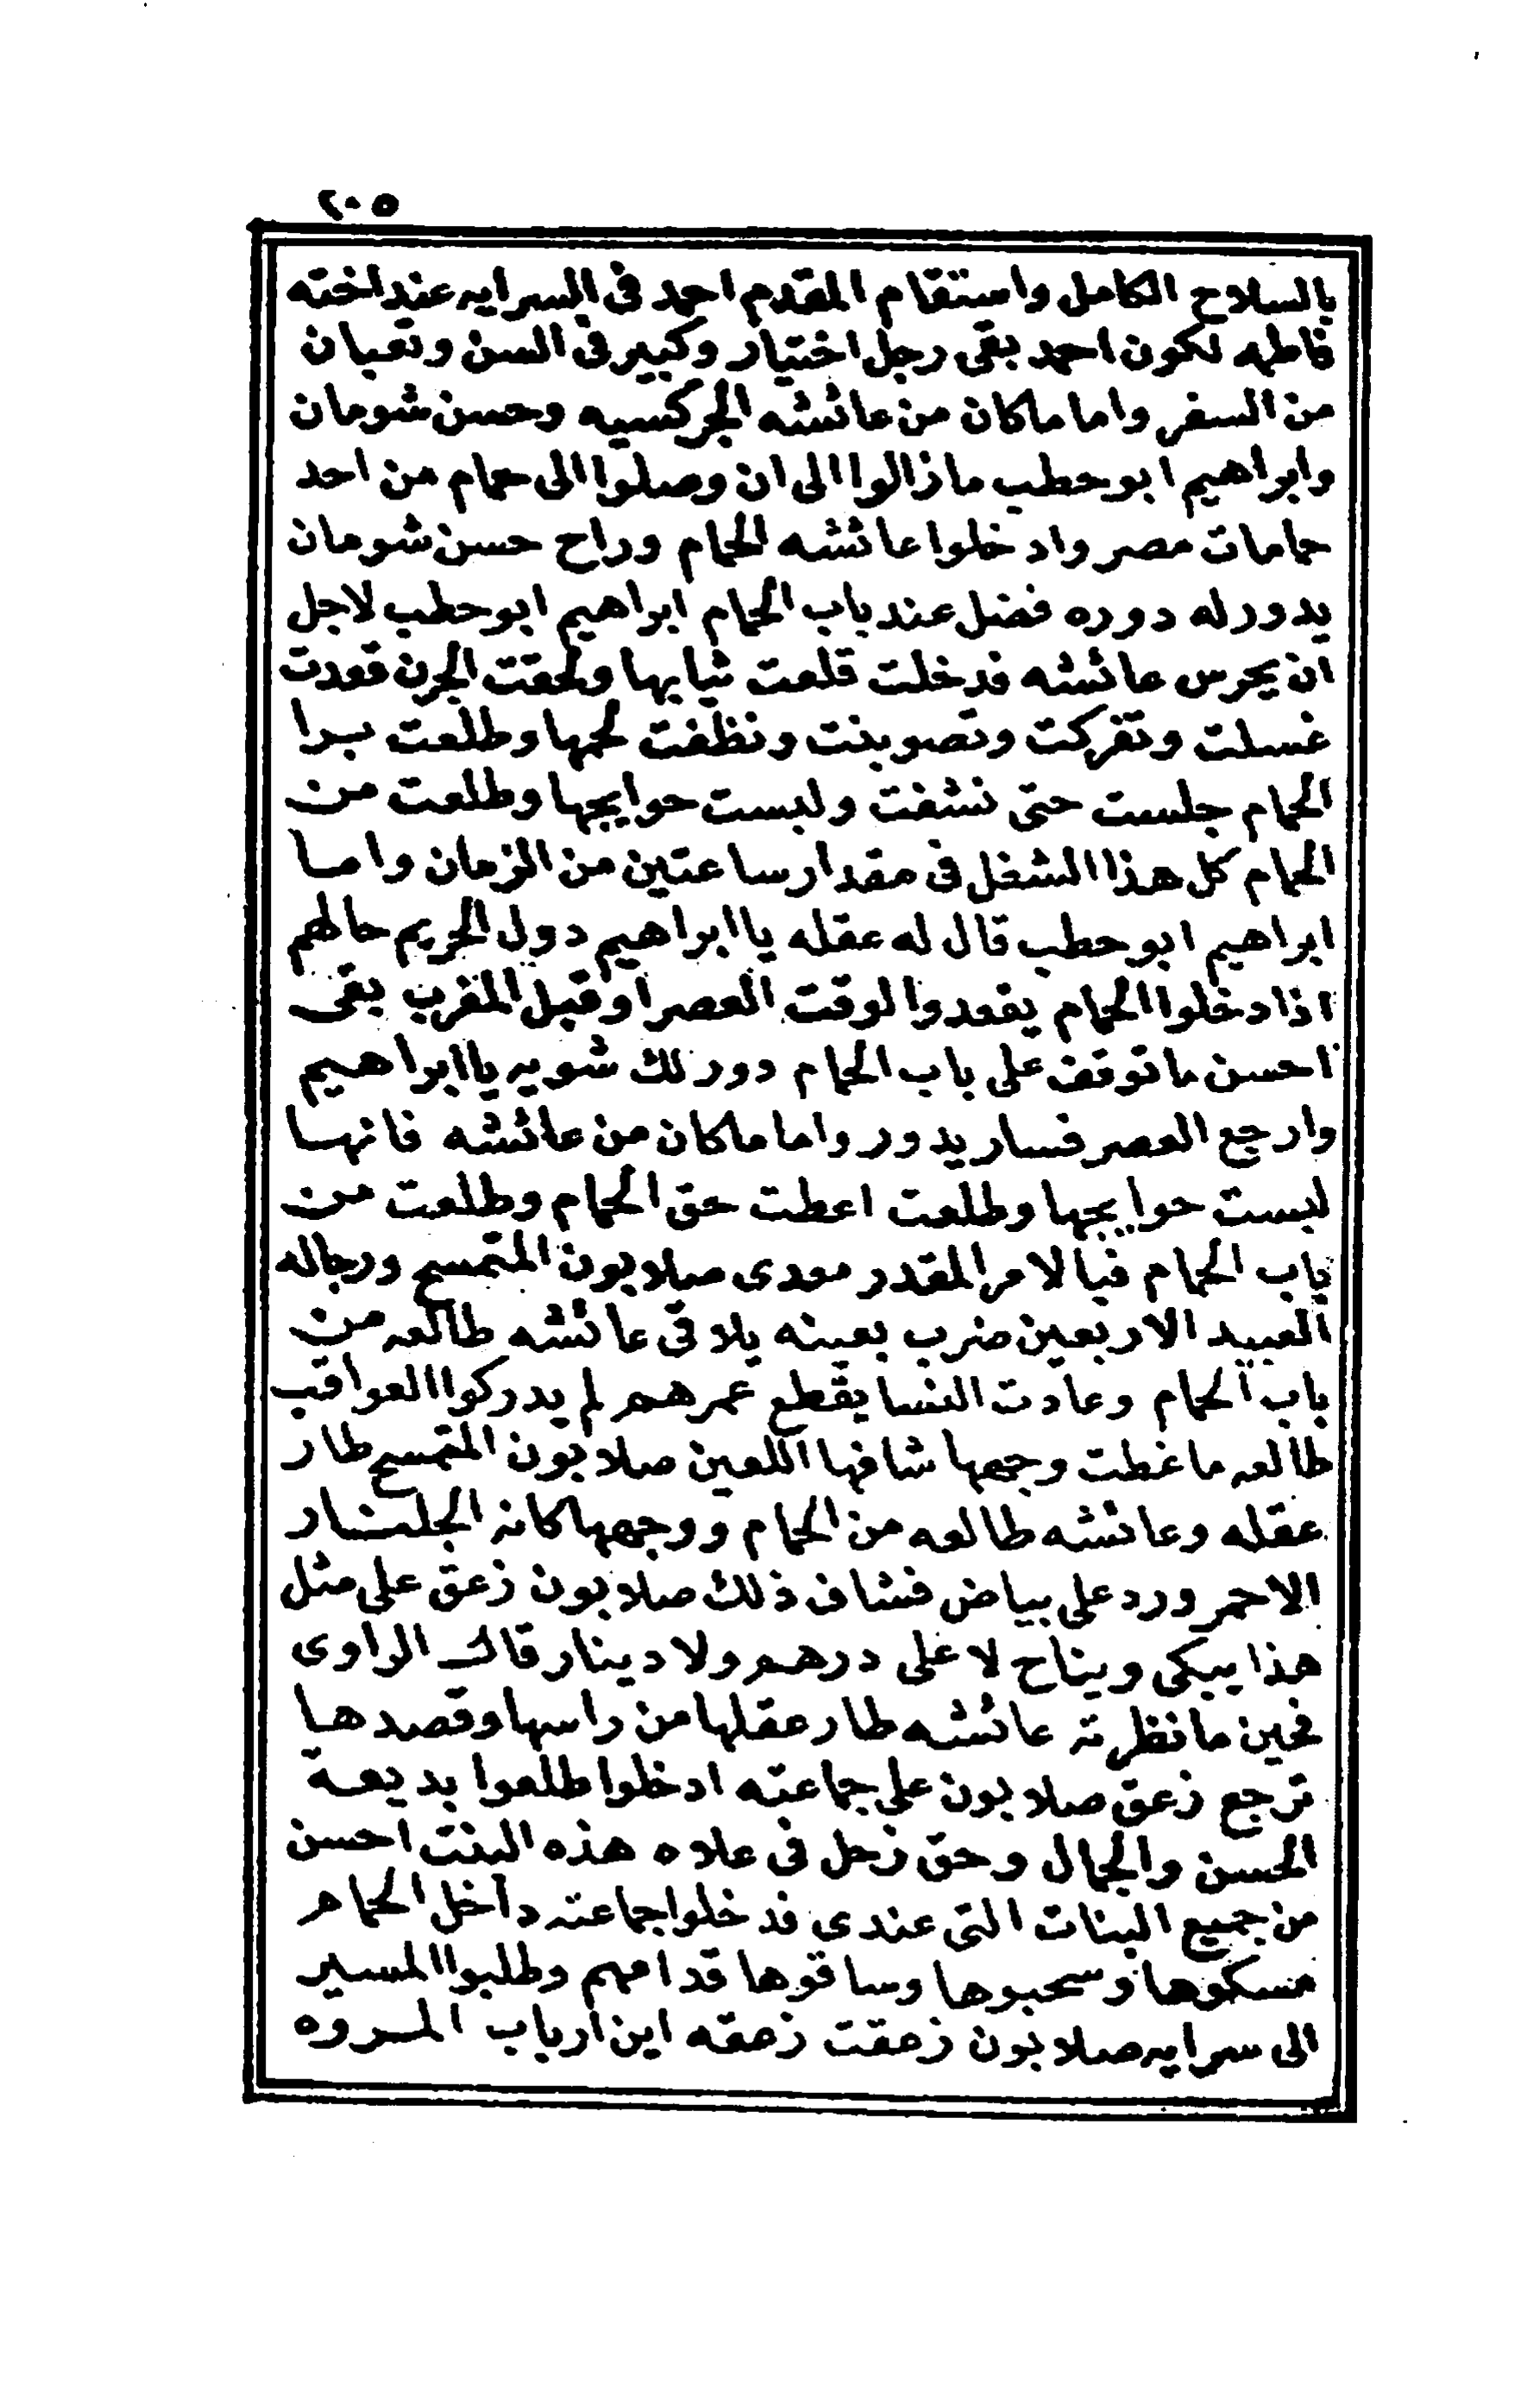 ٢٠٥
بالسلاح الكامل واستقام المقدم احمد فى السرايه عند اخته
فاطمه لكون احمد بقى رجل اختيار وكبير فى السن وتعبان
من السفر واما ماكان من عائشه الجركسيه وحسن شومان
وابراهيم ابو حطب ما زالوا الى ان وصلوا الى حمام من احد
حمامات مصر وادخلوا عائشه الحمام وراح حسن شومان
يدور له دوره فضل عند باب الحمام ابراهيم ابو حطب لاجل
ان يحرس عائشه فدخلت قلعت ثيابها ولحقت الجرن قعدت
غسلت وتفركت وتصوبنت ونظفت لحمها وطلعت برا
الحمام جلست حتى نشفت ولبست حوايجها وطلعت من
الحمام كل هذا الشغل فى مقدار ساعتين من الزمان واما
ابراهيم ابو حطب قال له عقله يا ابراهيم دول الحريم حالهم
اذا دخلوا الحمام يقعدوا لوقت العصر او قبل المغرب بقى
احسن ما توقف على باب الحمام دور لك شويه يا ابراهيم
وارجع العصر فسار يدور واما ماكان من عائشه فانها
لبست حوايجها وطلعت اعطت حق الحمام وطلعت من
باب الحمام فبالامر المقدر معدى صلابون المتمسح ورجاله
العبيد الاربعين ضرب بعينه يلاقى عائشه طالعه من
باب الحمام وعادت النسا يقطع عمرهم لم يدركوا العواقب
طالعه ما غطت وجهها شافها اللعين صلابون المتمسح طار
عقله وعائشه طالعه من الحمام ووجهها كانه الجلنار
الاحمر ورد على بياض فشاف ذلك صلابون زعق على مثل
هذا يبكى ويناح لا على درهم ولا دينار قال الراوى
فحين ما نظرته عائشه طار عقلها من راسها وقصدها
ترجع زعق صلابون على جماعته ادخلوا طلعوا بديعة
الحسن والجمال وحق زحل فى علاه هذه البنت احسن
من جميع البنات التى عندى فدخلوا جماعته داخل الحمام
مسكوها وسحبوها وساقوها قدامهم وطلبوا المسير
الى سرايه صلابون زعقت زعقه اين ارباب المروه